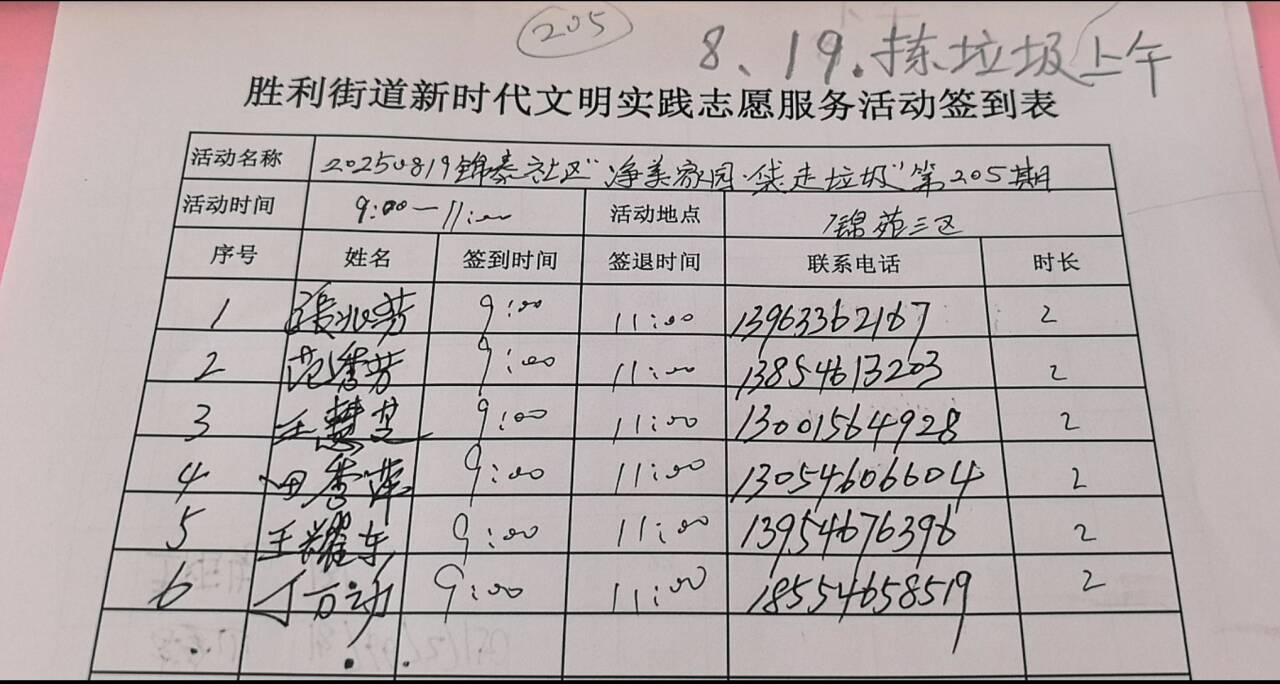 205
8、19.拣垃圾上午
胜利街道新时代文明实践志愿服务活动签到表
活动名称 20250819锦泰社区“净美家园·袋走垃圾”第205期
活动时间 9:00—11:00 活动地点 锦苑三区
序号 姓名 签到时间 签退时间 联系电话 时长
1 張兆芳 9:00 11:00 13963362167 2
2 范秀芳 9:00 11:00 13854613203 2
3 王慧芝 9:00 11:00 13001564928 2
4 田秀萍 9:00 11:00 13054606604 2
5 王耀东 9:00 11:00 13954676396 2
6 9:00 11:00 18554658519 2